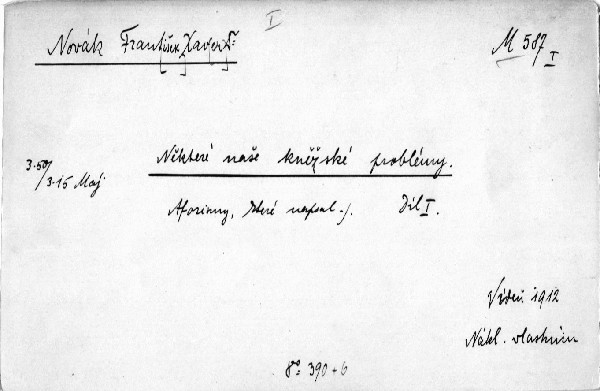 I
Novák Fran[tišek] X[aver] Dr
M 587/I
Některé naše kněžské problémy.
3·50/3·15 Maj
Aforismy, které napsal -/. Díl I.
Vídeň 1912
Nákl. vlastním
8° 390 + 6